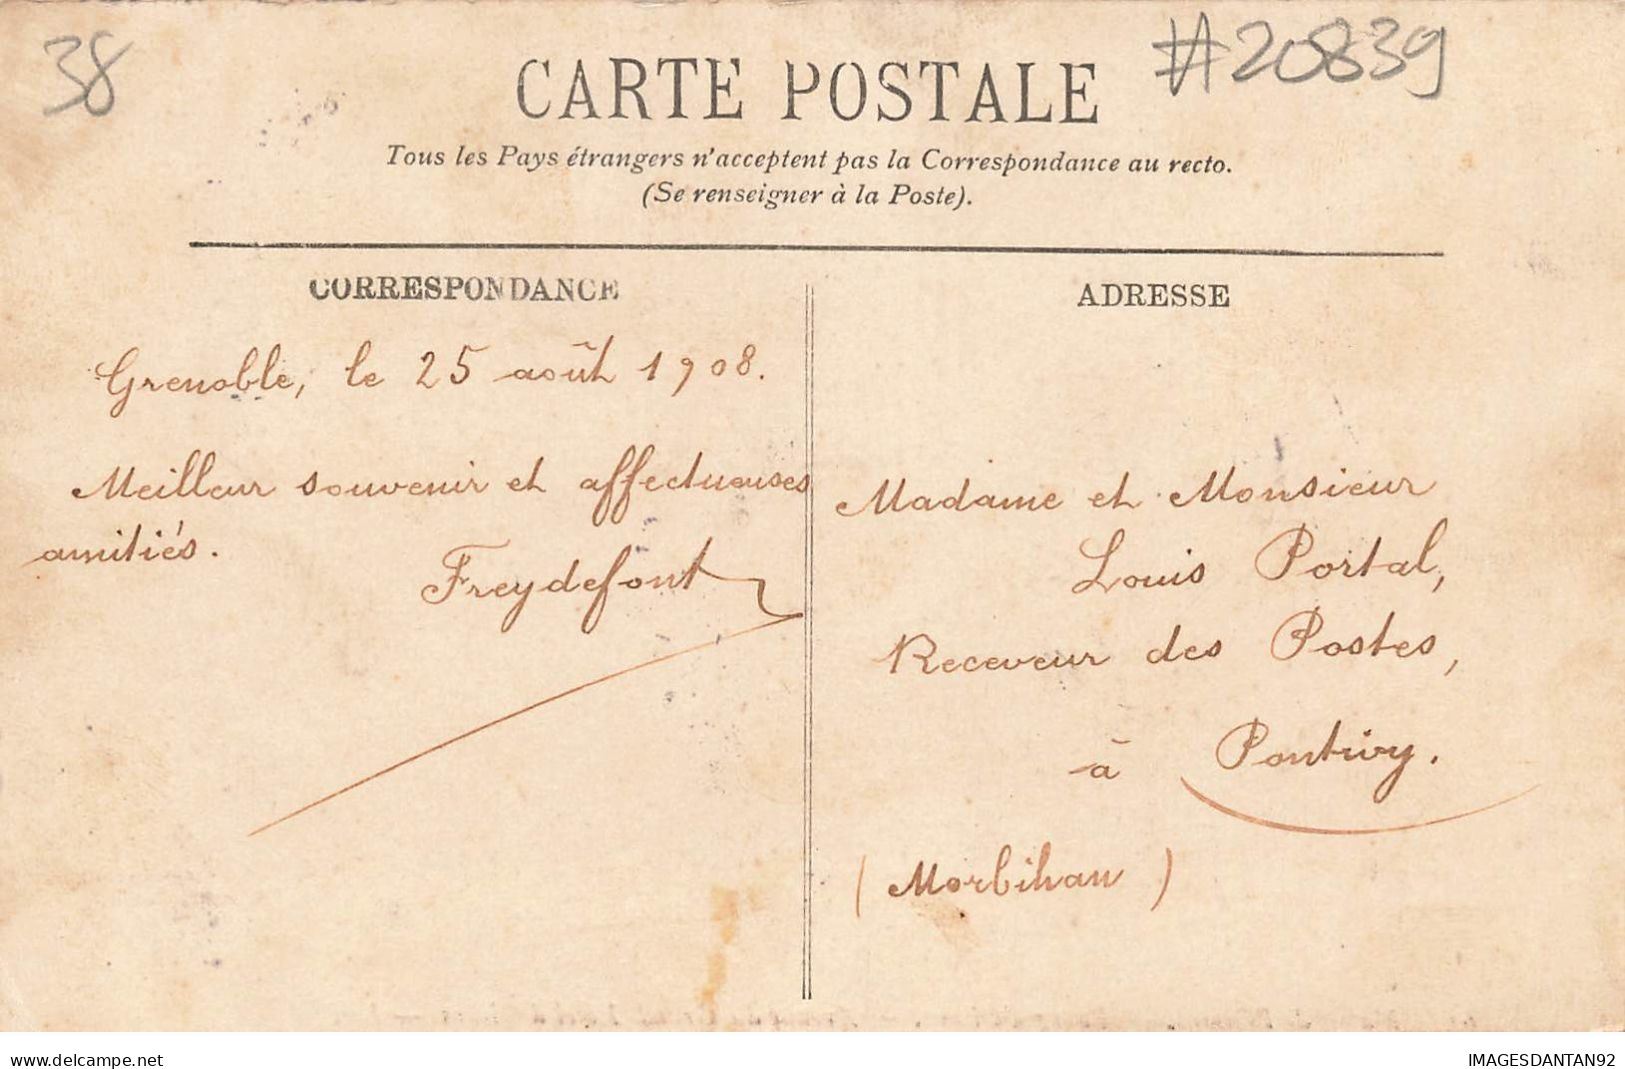 38
#20839
CARTE POSTALE
Tous les Pays étrangers n'acceptent pas la Correspondance au recto.
(Se renseigner à la Poste).
CORRESPONDANCE
Grenoble, le 25 août 1908.
Meilleur souvenir et affectueuses
amitiés.
Freydefont
ADRESSE
Madame et Monsieur
Louis Portal,
Receveur des Postes,
à Pontivy.
(Morbihan)
delcampe.net
IMAGESDANTAN92